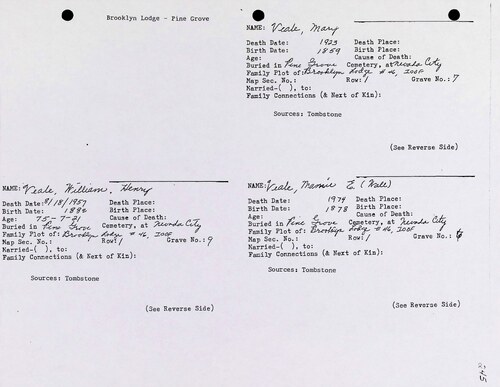 Brooklyn Lodge - Pine Grove
NAME: Veale, Mary
Death Date: 1923 Death Place:
Birth Date: 1859 Birth Place:
Age: Cause of Death:
Buried in Pine Grove Cemetery, at Nevada City
Family Plot of: Brooklyn Lodge #46, IOOF
Map Sec. No.: Row: 1 Grave No.: 7
Married-( ), to:
Family Connections (& Next of Kin):
Sources: Tombstone
(See Reverse Side)
NAME: Veale, William, Henry
Death Date: /18/1957 Death Place:
Birth Date: Birth Place:
Age: 75-7-21 Cause of Death:
Buried in Pine Grove Cemetery, at Nevada City
Family Plot of: Brooklyn Lodge #46, IOOF
Map Sec. No.: Row: 1 Grave No.: 9
Married-( ), to:
Family Connections (& Next of Kin):
Sources: Tombstone
(See Reverse Side)
NAME: Veale, Mamie E. (Wall)
Death Date: 1974 Death Place:
Birth Date: 1878 Birth Place:
Age: Cause of Death:
Buried in Pine Grove Cemetery, at Nevada City
Family Plot of: Brooklyn Lodge #46, IOOF
Map Sec. No.: Row: 1 Grave No.:
Married-( ), to:
Family Connections (& Next of Kin):
Sources: Tombstone
(See Reverse Side)